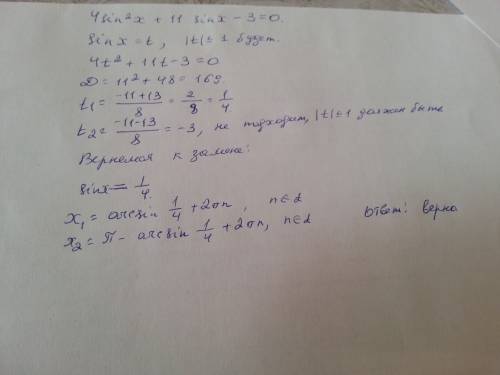 4sin²x + 11 sinx - 3 = 0.
sinx = t, |t| ≤ 1 будет.
4t² + 11t - 3 = 0
D = 11² + 48 = 169.
t₁ = (-11+13)/8 = 2/8 = 1/4.
t₂ = (-11-13)/8 = -3, не подходит, |t| ≤ 1 должен быть
Вернемся к замене:
sinx = 1/4.
x₁ = arcsin 1/4 + 2πn, n∈Z
x₂ = π - arcsin 1/4 + 2πn, n∈Z Ответ: верно